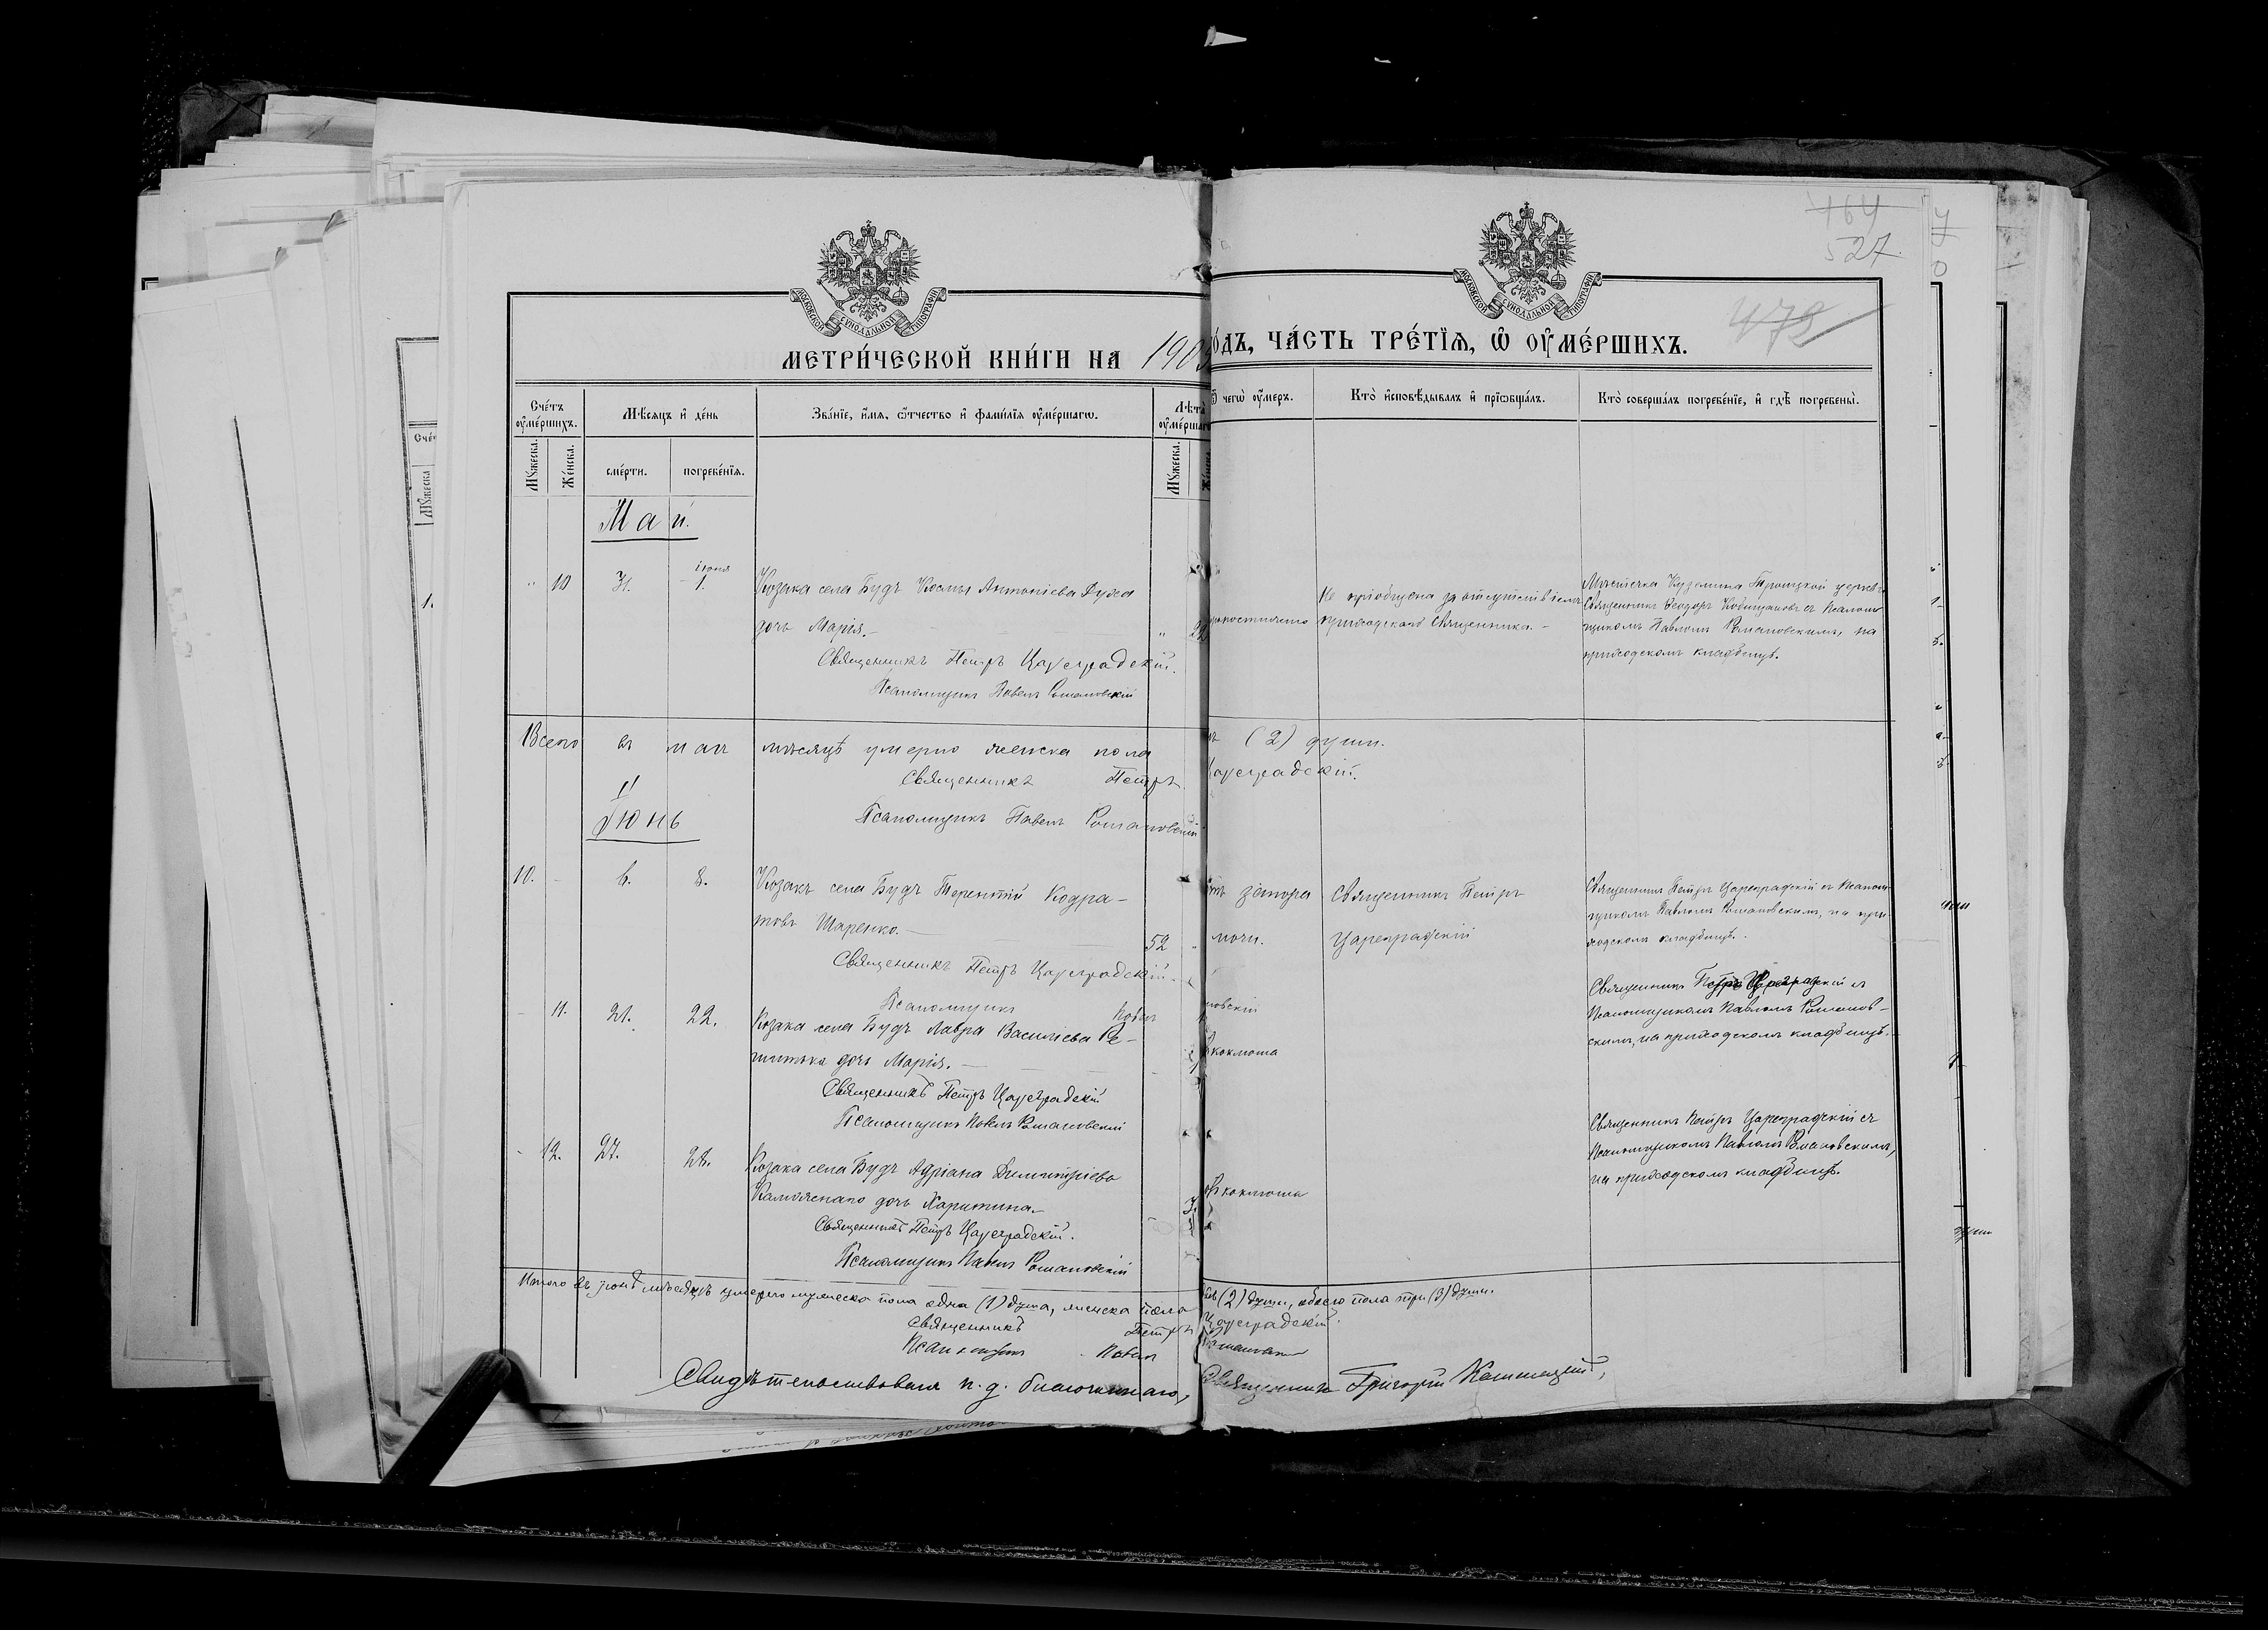 164
527
479
МОСКОВСКОЙ СѴНОДАЛЬНОЙ ТИПОГРАФІИ
МОСКОВСКОЙ СѴНОДАЛЬНОЙ ТИПОГРАФІИ
МЕТРИ́ЧЕСКОЙ КНИ́ГИ НА 190
ОДЪ, ЧА́СТЬ ТРЕ́ТЇѦ, Ѿ ОУ҆МЕ́РШИХЪ.
Сче́тъ оу҆ме́ршихъ.
Мѣ́сяцъ и҆ де́нь
Зва́нїе, и҆́мѧ, ѻ҆́тчество и҆ фами́лїѧ оу҆ме́ршагѡ.
Лѣта̀ оу҆ме́ршаг
ѿ чегѡ̀ оу҆́меръ.
Кто̀ и҆сповѣ́дывалъ и҆ прїѡбща́лъ.
Кто̀ соверша́лъ погребе́нїе, и҆ гдѣ̀ погребены̀.
Мꙋ́жеска.
Же́нска.
сме́рти.
погребе́нїѧ.
Мꙋ́жеска.
Май.
іюня
" 10 31. 1. Козака села Будъ Космы Антоніева Духа
дочь Марія.
Священникъ Петръ Цареградскій.
Псаломщикъ Павелъ Романовскій
Не пріобщена за отсутствіемъ
приходскаго Священника.
Мѣстечка Куземина Троицкой церкви
Священникъ Ѳеодоръ съ Псалом
щикомъ Павломъ Романовскимъ, на
приходскомъ кладбищѣ.
Всего въ маѣ мѣсяцѣ умерло женска пола (2) души.
Священникъ Петръ Цареградскій.
Псаломщикъ Павелъ Романовскій
Іюнь
10. 6. 8. Козакъ села Будъ Терентій Кодра-
товъ Шаренко. 52
Священникъ Петръ Цареградскій
Псаломщикъ Павелъ новскій
запора
мочи.
Священникъ Петръ
Цареградскій
Священникъ Петръ Цареградскій съ Псалом
щикомъ Павломъ Романовскимъ, на при
ходскомъ кладбищѣ.
11. 21. 22. Козака села Будъ Лавра Василіева Ре-
дочь Марія.
Священникъ Петръ Цареградскій
Псаломщикъ Павелъ Романовскій
коклюша
Священникъ Петръ Цареградскій съ
Псаломщикомъ Павломъ Романов-
скимъ, на приходскомъ кладбищѣ.
12. 27. 28. Козака села Будъ Адріана Димитріева
дочь Харитина.
Священникъ Петръ Цареградскій.
Псаломщикъ Павелъ Романовскій
коклюша
Священникъ Петръ Цареградскій съ
Псаломщикомъ Павломъ Романовскимъ,
на приходскомъ кладбищѣ.
Итого въ іюнѣ мѣсяцѣ умерло мужеска пола одна (1) душа, женска пола (2) души, обоего пола три (3) души.
Священникъ Петръ Цареградскій.
Псаломщикъ Павелъ Романовскій
Свидѣтельствовалъ и. д. благочиннаго, Священникъ Григорій